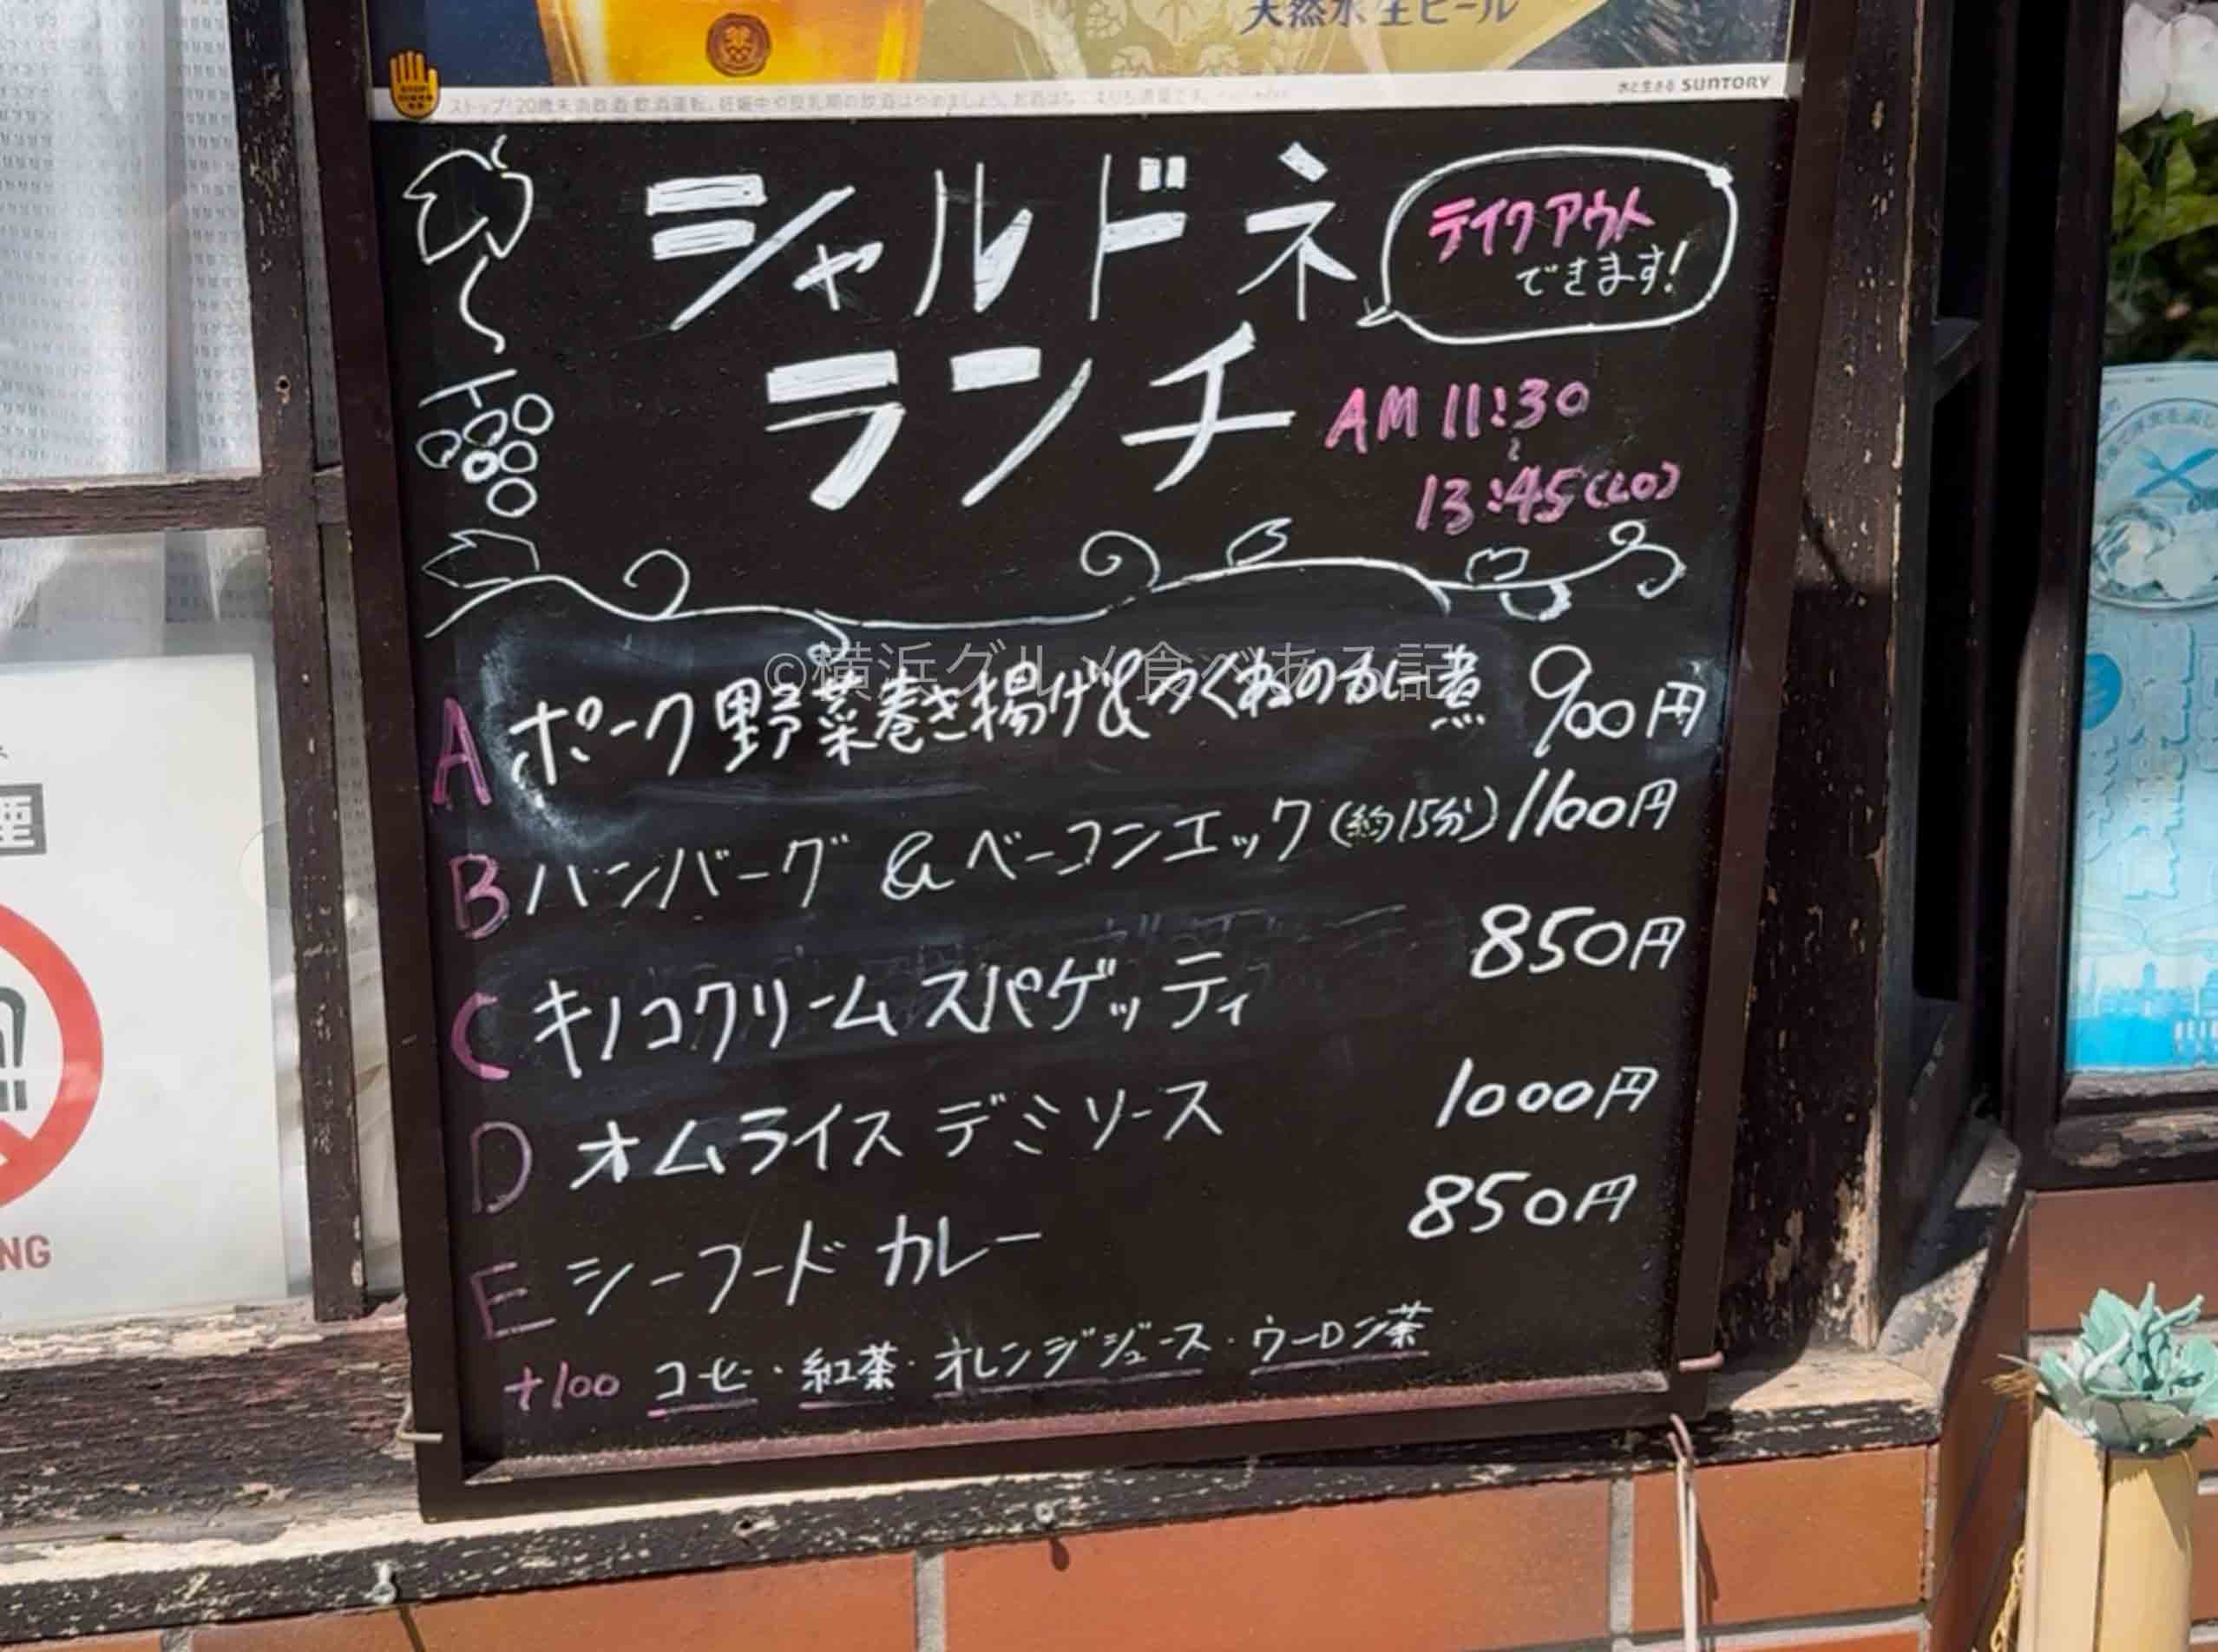 天然水生ビール
水と生きる SUNTORY
ストップ!20歳未満飲酒・飲酒運転。妊娠中や授乳期の飲酒はやめましょう。
シャルドネ
テイクアウト
できます!
ランチ
AM 11:30
~
13:45(LO)
©横浜グルメ食べある記
A ポーク野菜巻き揚げ&つくねのみに煮 900円
B ハンバーグ&ベーコンエッグ(約15分) 1100円
C キノコクリームスパゲッティ 850円
D オムライス デミソース 1000円
E シーフードカレー 850円
+100 コーヒー・紅茶・オレンジジュース・ウーロン茶
NG